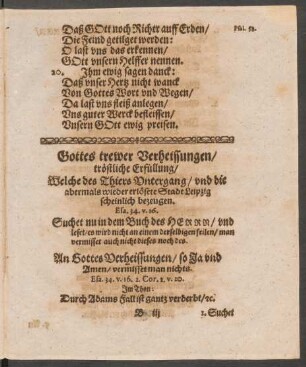 Daß GOtt noch Richer auff Erden/
Psal. 58.
Die Feind getilget worden:
O last vns das erkennen/
GOtt vnsern Helffer nennen.
20. Ihm ewig sagen danck:
Daß vnser Hertz nicht wanck
Von Gottes Wort vnd Wegen/
Da last vns fleiß anlegen/
Vns guter Werck befleissen/
Vnsern GOtt ewig preisen.
Gottes trewer Verheissungen/
tröstliche Erfüllung/
Welche des Thiers Vntergang/ vnd die
abermals wieder erlösete Stadt Leipzig
scheinlich bezeugen.
Esa. 34. v. 16.
Suchet nu in dem Buch des HERRN/ vnd
leset/ es wird nicht an einem derselbigen feilen/ man
vermisset auch nicht dieses noch des.
An Gottes Verheissungen/ so Ja vnd
Amen/ vermisset man nichts.
Esa. 34. v. 16. 2. Cor. 1. v. 20.
Im Thon:
Durch Adams Fall ist gantz verderbt/ ꝛc.
B iij
1. Suchet